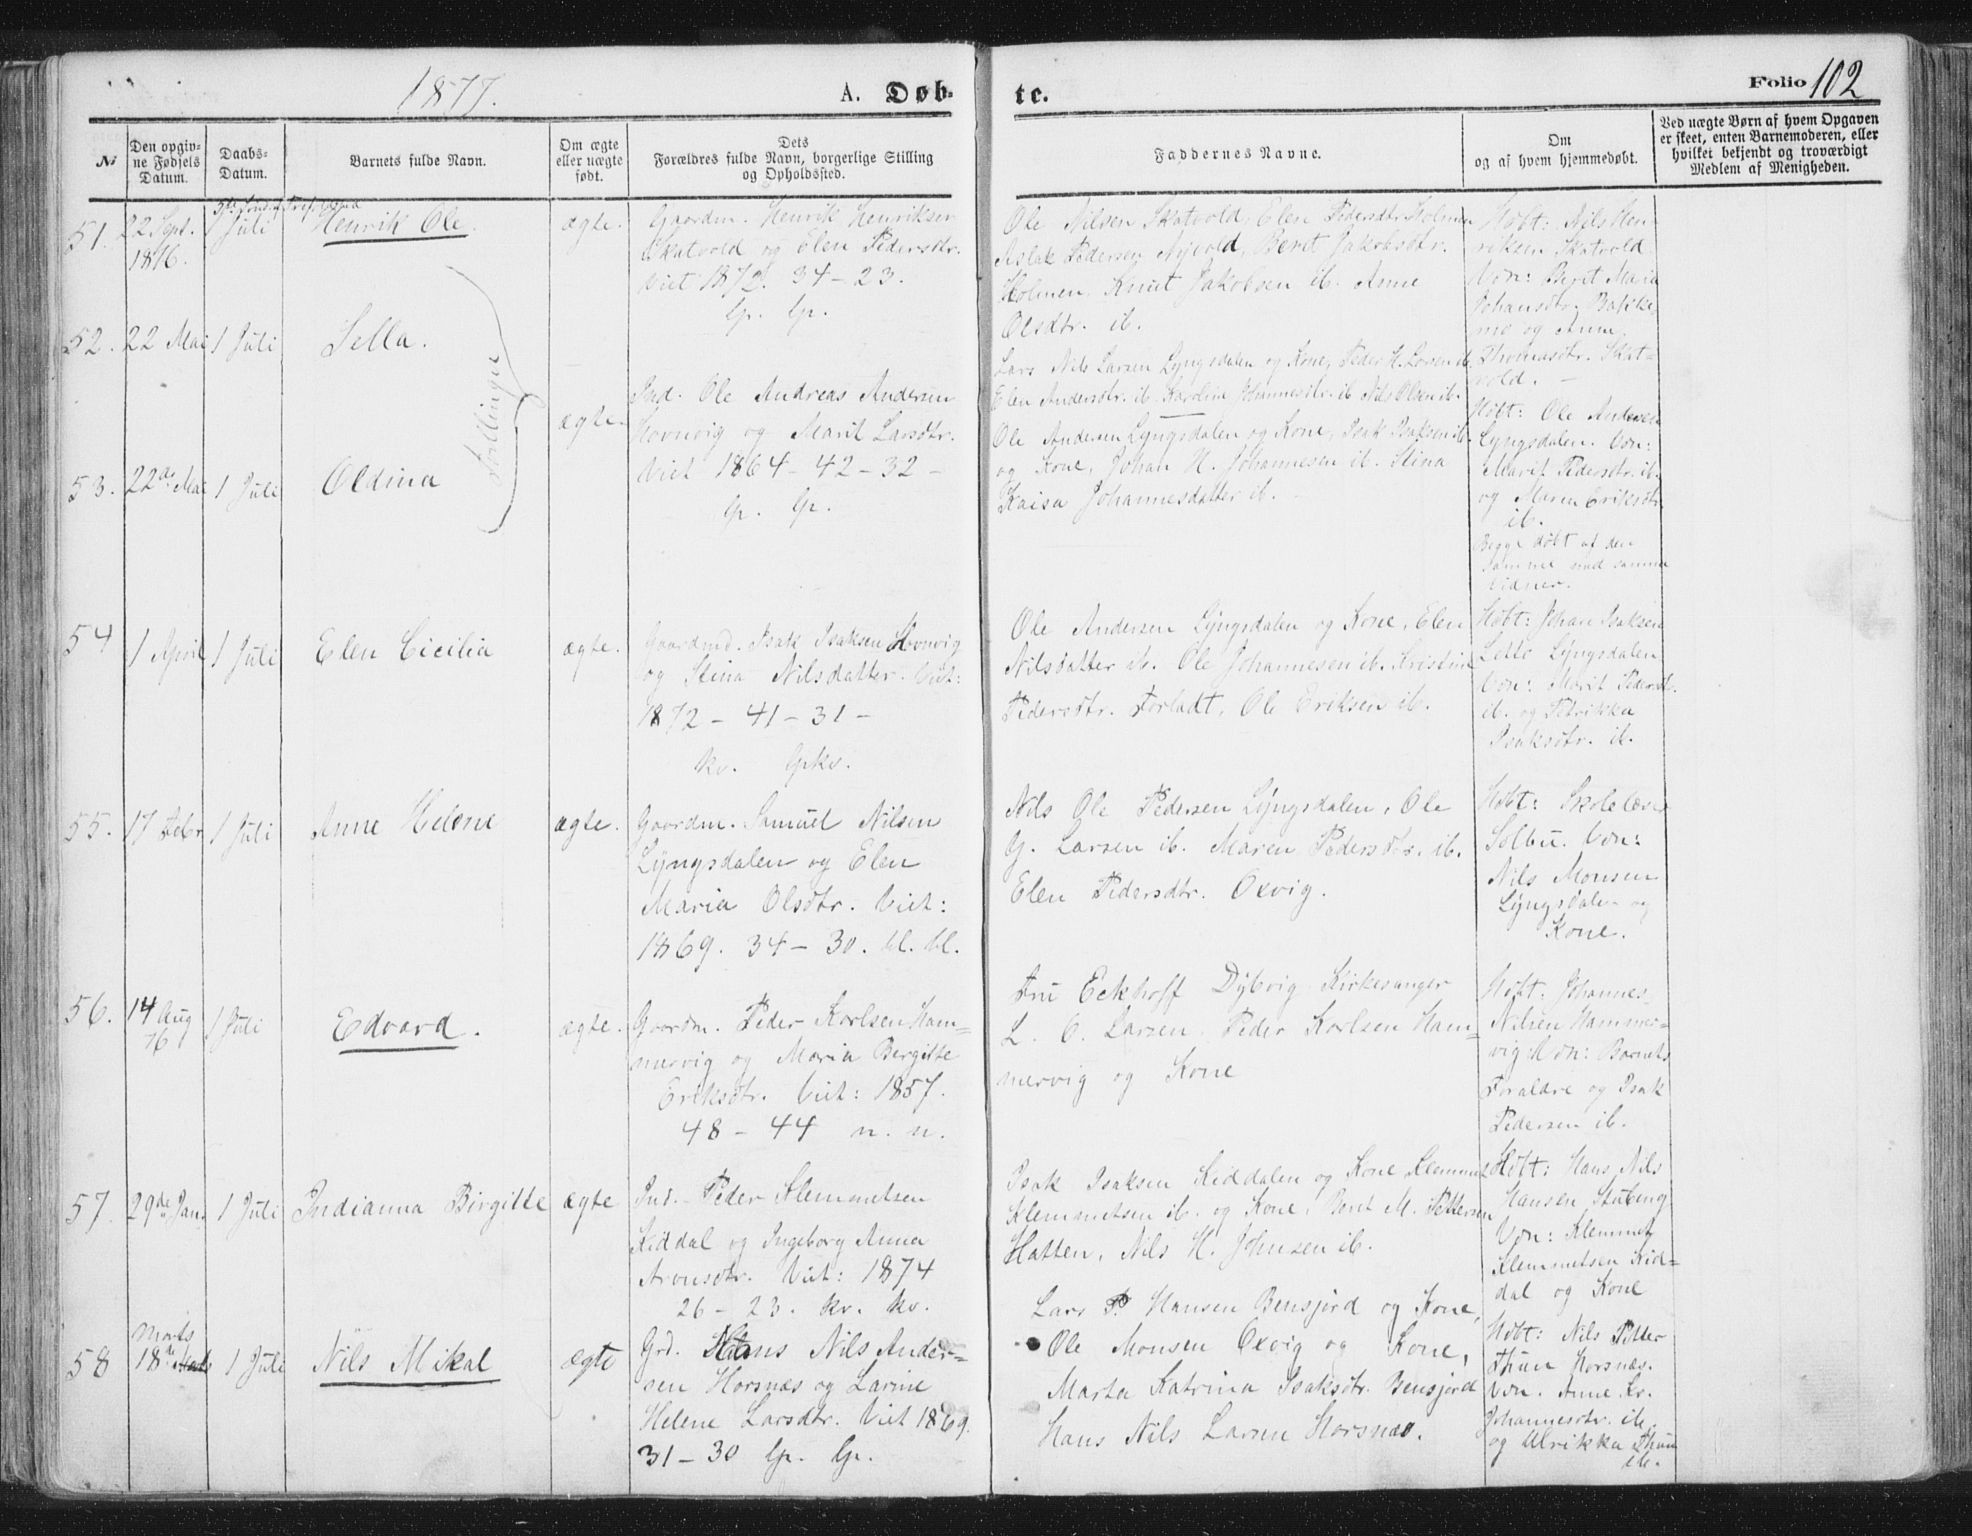 1877.
A. Døb-
te.
Folio 102
No
Den opgiv-
ne Fødsels
Datum.
Daabs-
Datum.
Barnets fulde Navn.
Om ægte
eller uægte
født.
Dets
Forældres fulde Navn, borgerlige Stilling
og Opholdssted.
Faddernes Navne.
Om
og af hvem hjemmedøbt.
Ved uægte Børn af hvem Opgaven
er skeet, enten Barnemoderen, eller
hvilket bekjendt og troværdigt
Medlem af Menigheden.
51.
22 Sept.
1876.
1 Juli
Henrik Ole.
ægte.
Gaardm. Henrik Henriksen
Skatvold og Elen Pedersdtr.
Viet 1872. 34-23.
lp. lp.
Ole Nilsen Skatvold, Elen Pedersdtr. Holmen
Aslak Pedersen Nyvold, Berit Jakobsdtr.
Holmen, Knut Jakobsen ib. Anne
Olsdtr. ib.
Hdbt: Nils Hen-
riksen Skatvold
Vdn: Berit Maria
Johansdtr. Bakke-
mo og Anne
Thomasdtr. Skat-
vold. -
52.
22 Mai
1 Juli
Sella.
Tvillinger
ægte.
Ind. Ole Andreas Andersen
Hovnvig og Marit Larsdtr.
Viet 1864 - 42 - 32 -
lp. lp.
Lars Nils Larsen Lyngsdalen og Kone, Peder H. Larsen ib.
Elen Andersdtr. ib. Karoline Johannesdtr. ib. Nils Olsen ib.
53.
22de Mai
1 Juli
Oldina
Ole Andersen Lyngsdalen og Kone, Isak Isaksen ib.
og Kone, Johan N. Johannesen ib. Stina
Kaisa Johannesdatter ib.
Hdbt: Ole Andersen
Lyngsdalen. Vdn:
Marit Pedersdtr. ib.
og Maren Eriksdtr.
ib.
Begge døbt af den
samme med samme
Vidner.
54
1 April
1 Juli
Elen Cicilia
ægte.
Gaardmd. Isak Isaksen Hovnvig
og Stina Nilsdatter. Viet:
1872 - 41 - 31 -
kv. lpkv.
Ole Andersen Lyngsdalen og Kone, Elen
Nilsdatter ib. Ole Johannesen ib. Kristine
Pedersdtr. Forladt, Ole Eriksen ib.
Hdbt: Johan Isaksen
Lyngsdalen
Vdn: Marit Pedersdtr.
ib. og Petrikka
Isaksdtr. ib.
55.
17 Febr
1 Juli
Anne Helene
ægte.
Gaardm. Samuel Nilsen
Lyngsdalen og Elen
Maria Olsdtr. Viet:
1869. 34 - 30. bl. bl.
Nils Ole Pedersen Lyngsdalen, Ole
G. Larsen ib. Maren Pedersdtr. ib.
Elen Pedersdtr. Oxvig.
Hdbt: Skolelærer
Solbu. Vdn:
Nils Monsen
Lyngsdalen og
Kone.
56.
14 Aug
76
1 Juli
Edvard.
ægte.
Gaardm. Peder Karlsen Ham-
mervig og Maria Bergitte
Eriksdtr. Viet: 1857.
48 - 44 n. n.
Fru Eckhoff Dybvig Kirkesanger
L. C. Larsen Peder Karlsen Ham-
mervig og Kone
Hdbt: Johannes
Nilsen Hammer-
vig Vdn: Barnets
Forældre og Isak
Pedersen ib.
57.
29de Jan.
1 Juli
Indianna Birgitte
ægte
Ind. Peder Klemmetsen
Kiddal og Ingeborg Anna
Aronsdtr. Viet: 1874
26 - 23. kv. kv.
Isak Isaksen Kiddalen og Kone Klemmet
Klemmetsen ib. og Kone, Beret M. Pettersen
Hatten, Nils H. Johnsen ib.
Hdbt: Hans Nils
Hansen Stubeng
Vdn: Klemmet
Klemmetsen Kid-
dal og Kone
58
Marts
18de
1 Juli
Nils Mikal
ægte
Grd. Hans Nils Ander-
sen Horsnæs og Larine
Helene Larsdtr. Viet 1869.
31 - 30 lp. lp.
Lars P. Hansen Bensjord og Kone,
Ole Monsen Oxvig og Kone,
Marta Katrina Isaksdtr. Bensjord
Hans Nils Larsen Horsnæs.
Hdbt: Nils Petter
Thun Horsnæs.
Vdn. Anne Kr.
Johannesdtr. ib.
og Ulrikka Thun
ib.